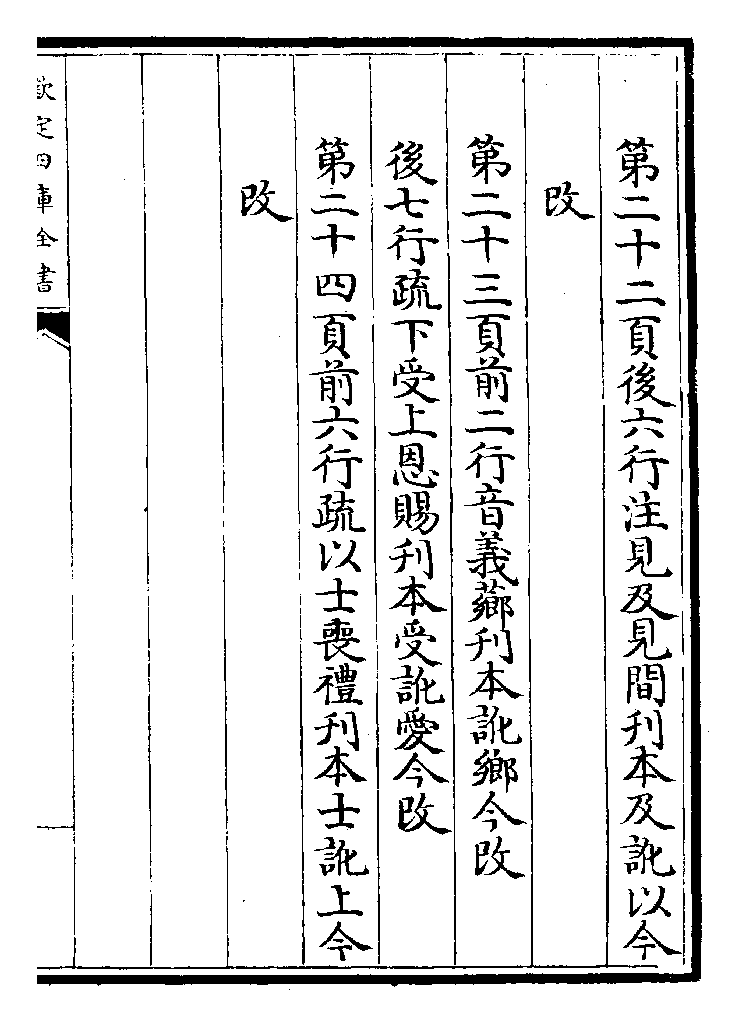 第二十二頁後六行注見及見間刋本及訛以今
改
第二十三頁前二行音義薌刋本訛鄉今改
後七行疏下受上恩賜刋本受訛愛今改
第二十四頁前六行疏以士喪禮刋本士訛上今
改
欽定四庫全書